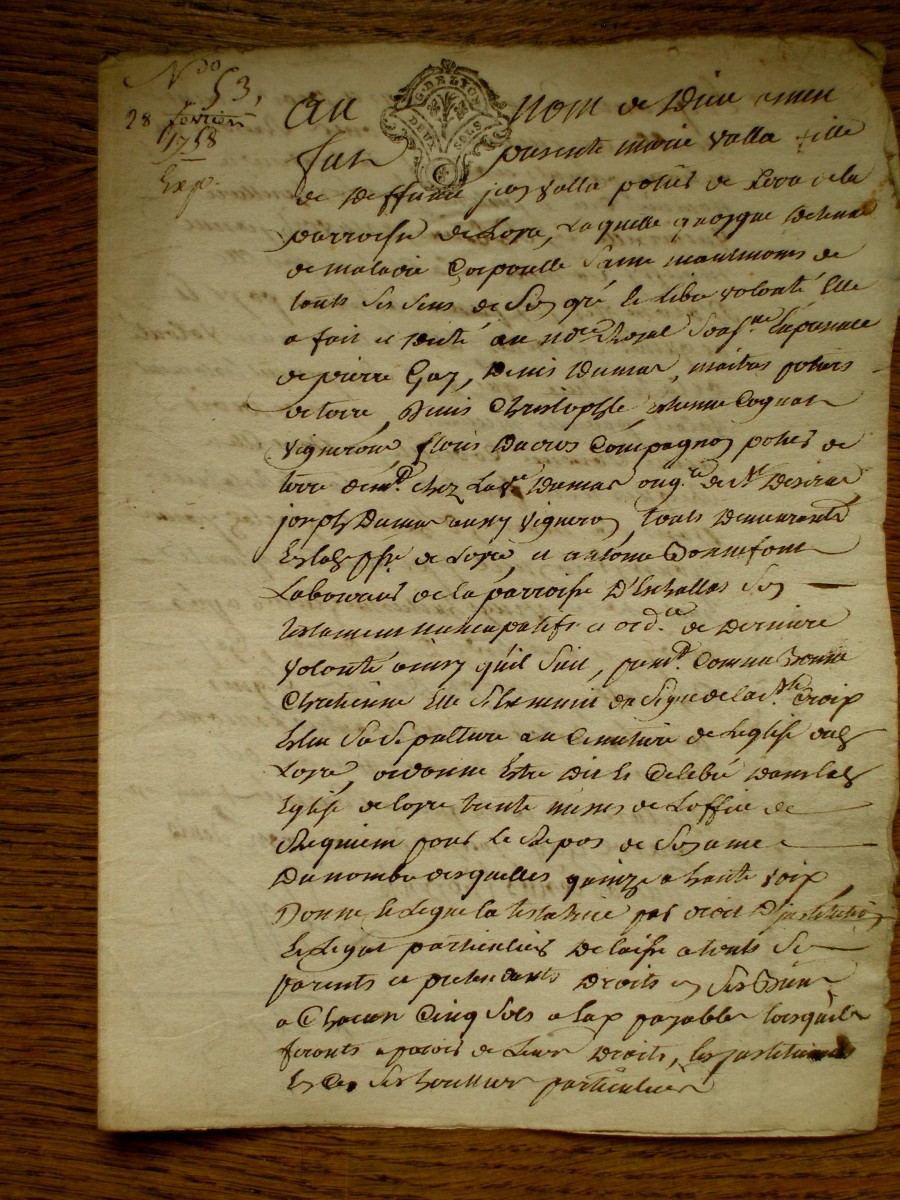 N.do 53,
28 fevrier
1758
Exp.
G. DE LYON
DEUX SOLS
Au nom de Dieu amen
fut presente marie Valla fille
de deffunt jean Valla potier de terre de la
parroisse de Loyre, Laquelle quoyque detenue
de maladie Corporelle saine neantmoins de
touts ses sens de son gré et libre volonté Elle
a fait et dicté au no.re Royal sousg.né En presence
de pierre Gay, Denis Dumas, maitres potiers
de terre, Denis Christophle, etienne Cognat
vignerons, floris Ducros Compagnon potier de
terre dem.t chez La v.e Dumas orig.re de St
joseph Dumas aussy vigneron, touts Demeurants
En lad. psse de Loyre, et antoine Bonnefont
Laboureur de la parroisse D'Echallas son
testament nuncupatif et ord.ce de derniere
volonté ainsy qu'il suit, prem.t Comme bonne
Chretienne Elle s'est munie du signe de la S.te Croix
Eslue sa sepulture au Cimetiere de L'eglise dud.
Loyre, ordonne Estre dit et Celebré dans lad.
Eglise de loyre trente messes de L'office de
Requiem pour le Repos de son ame
Du nombre desquelles quinze a haute voix
Donne et Legue la testatrice par droit D'jnstitution
et Legat particulier delaisse a touts ses
parents et pretendants Droits en ses Biens
a Chacun Cinq sols a eux payables lorsqu'ils
feronts aparoir de Leurs Droits, les jnstituants
En Ce ses heritiers particuliers